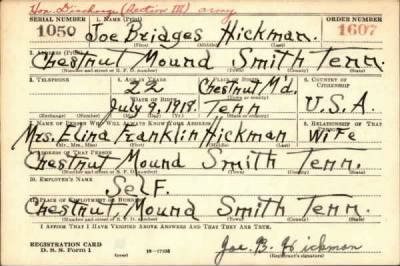 Hon. Discharge (Section III) army
SERIAL NUMBER 1. NAME (Print) ORDER NUMBER
1050 Joe Bridges Hickman. 1607
(First) (Middle) (Last)
Chestnut Mound Smith Tenn.
3. TELEPHONE 22 Chestnut Md. 6. COUNTRY OF CITIZENSHIP
DATE OF BIRTH
July 9, 1918. Tenn U.S.A.
(Exchange) (Number) (Mo.) (Day) (Yr.) (State or country)
7. NAME OF PERSON WHO WILL ALWAYS KNOW YOUR ADDRESS 8. RELATIONSHIP OF THAT PERSON
Mrs. Elina Franklin Hickman Wife
(Mr., Mrs., Miss) (First) (Middle) (Last)
9. ADDRESS OF THAT PERSON
Chestnut Mound Smith Tenn.
(Number and street or R. F. D. number) (Town) (County) (State)
10. EMPLOYER'S NAME
Self.
11. PLACE OF EMPLOYMENT OR BUSINESS
Chestnut Mound Smith Tenn.
(Number and street or R. F. D. number) (Town) (County) (State)
I AFFIRM THAT I HAVE VERIFIED ABOVE ANSWERS AND THAT THEY ARE TRUE.
REGISTRATION CARD
D. S. S. Form 1 Joe. B. Hickman
(Registrant's signature)